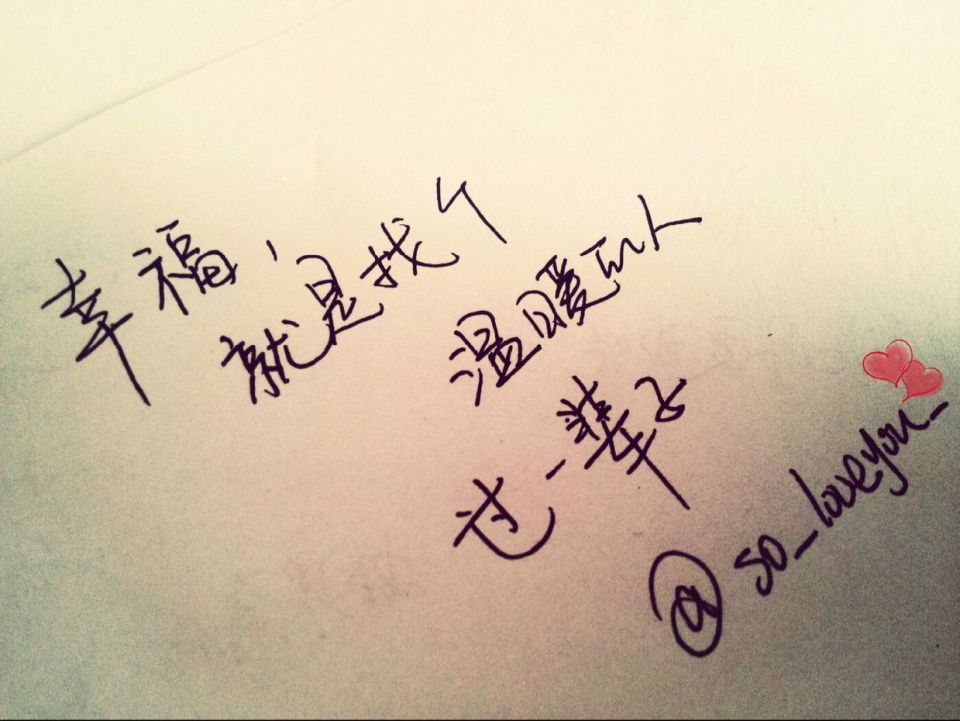 幸福,
就是找个
温暖的人
过一辈子
@so_loveyou_